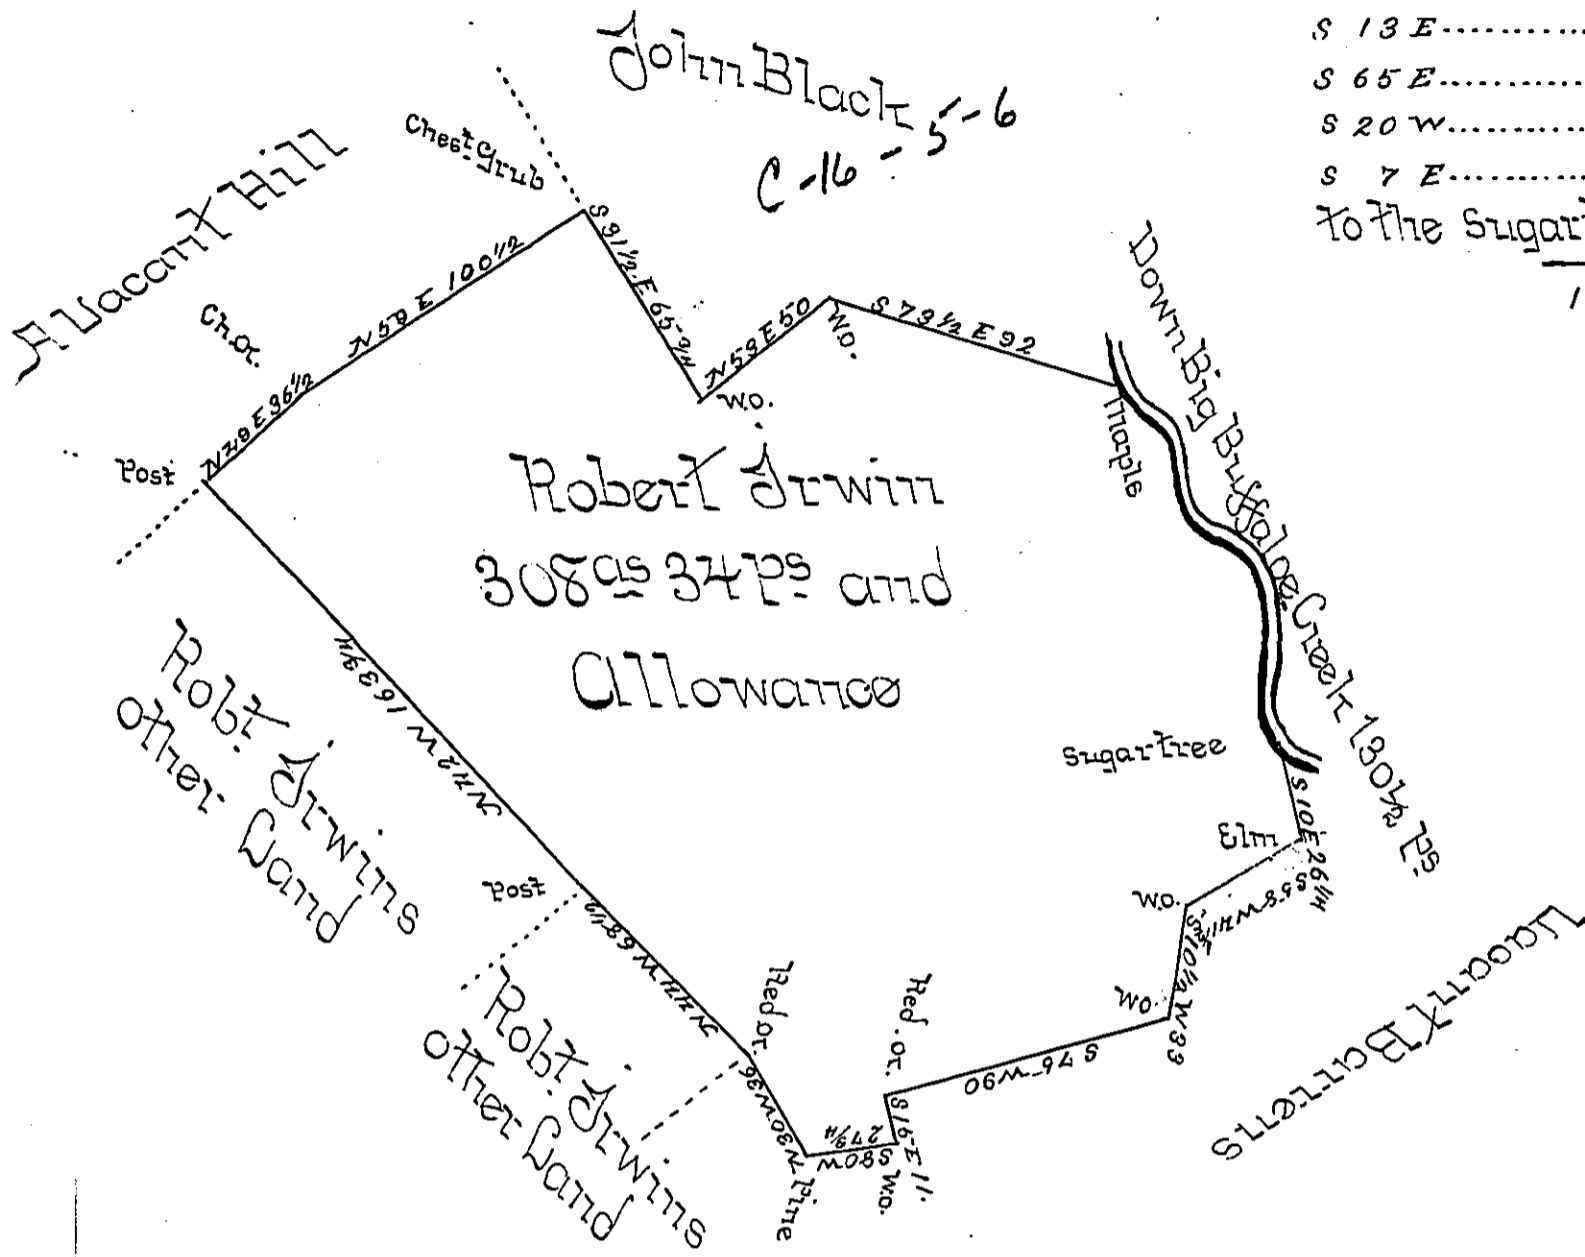 S 13 E...........
S 65 E...........
S 20 W...........
S 7 E...........
to the Sugar
John Black
C-16-5-6
A Vacant Hill
Chest. Grub
Ch.or.
Post
N 49 E 36 1/2
N 59 E 100 1/2
S 31 1/2 E 65 3/4
W.O.
N 53 E 50
W.O.
S 73 1/2 E 92
Maple
Down Big Buffaloe Creek 130 1/2 Ps.
Robert Irwin
308 as 34 Ps and
Allowance
Sugartree
S 10 E 26 1/4
Elm
S 58 W
W.O.
S 10 1/2 W 33
W.O.
S 76 W 90
Red.or.
S 16 E 11.
W.O.
S 80 W
27 3/4
Pine
N 30 W 36
Red or.
N 44 W 68 1/2
Post
N 42 W 163 3/4
Robt. Irwins
other Land
Robt. Irwins
other Land
Vacant Barrens